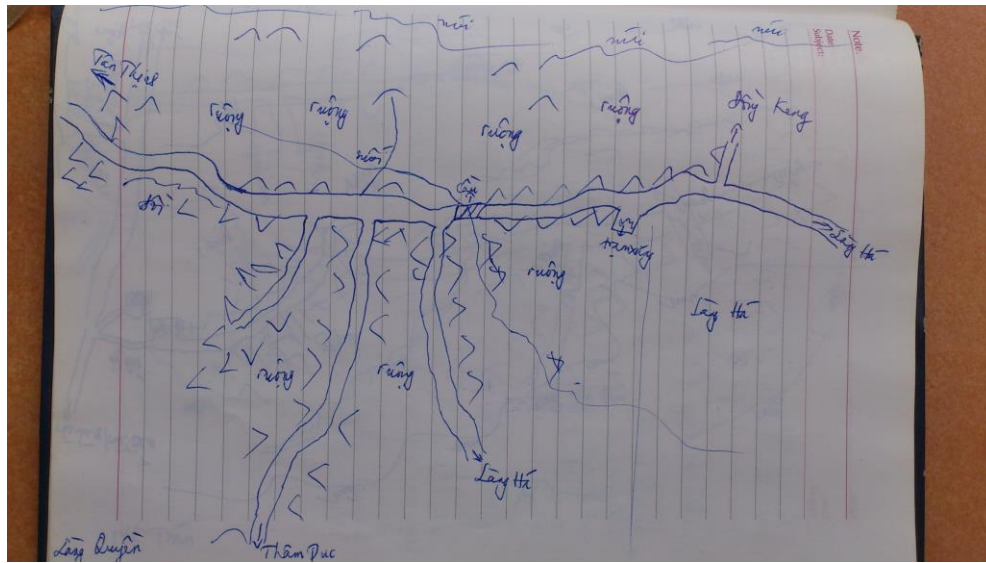 núi
núi
núi
Note:
Date:
Subject:
Tân Thịnh
ruộng
ruộng
ruộng
ruộng
Đồng Keng
suối
Cầu
đồi
Trạm xá
Làng Há
ruộng
Làng Há
ruộng
ruộng
Làng Há
Làng Quyền
Thâm Dục